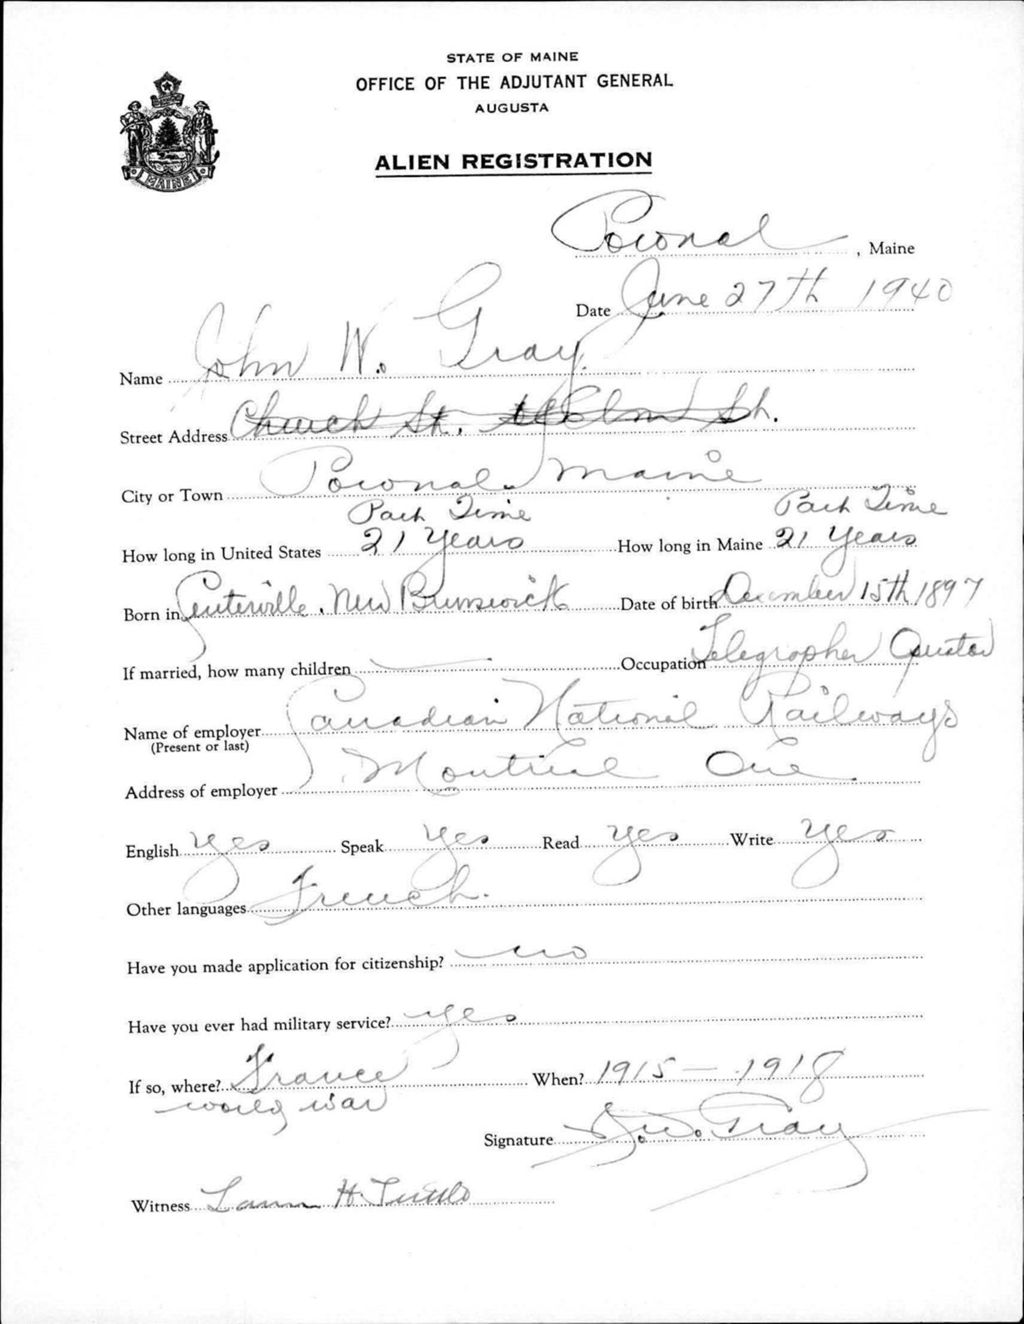 STATE OF MAINE
OFFICE OF THE ADJUTANT GENERAL
AUGUSTA
MAINE
ALIEN REGISTRATION
Pownal, Maine
Date June 27th 1940
Name John W. Gray
Street Address Church St. Elm St.
City or Town Pownal Maine
Part Time Part Time
How long in United States 21 Years How long in Maine 21 Years
Born in Centerville, New Brunswick Date of birth December 15th 1897
If married, how many children — Occupation Telegrapher Operator
Name of employer Canadian National Railways
(Present or last)
Address of employer Montreal Que.
English Yes Speak Yes Read Yes Write Yes
Other languages French.
Have you made application for citizenship? no
Have you ever had military service? yes
If so, where? France When? 1915 — 1918
world war
Signature J. W. Gray
Witness H. Tuttle